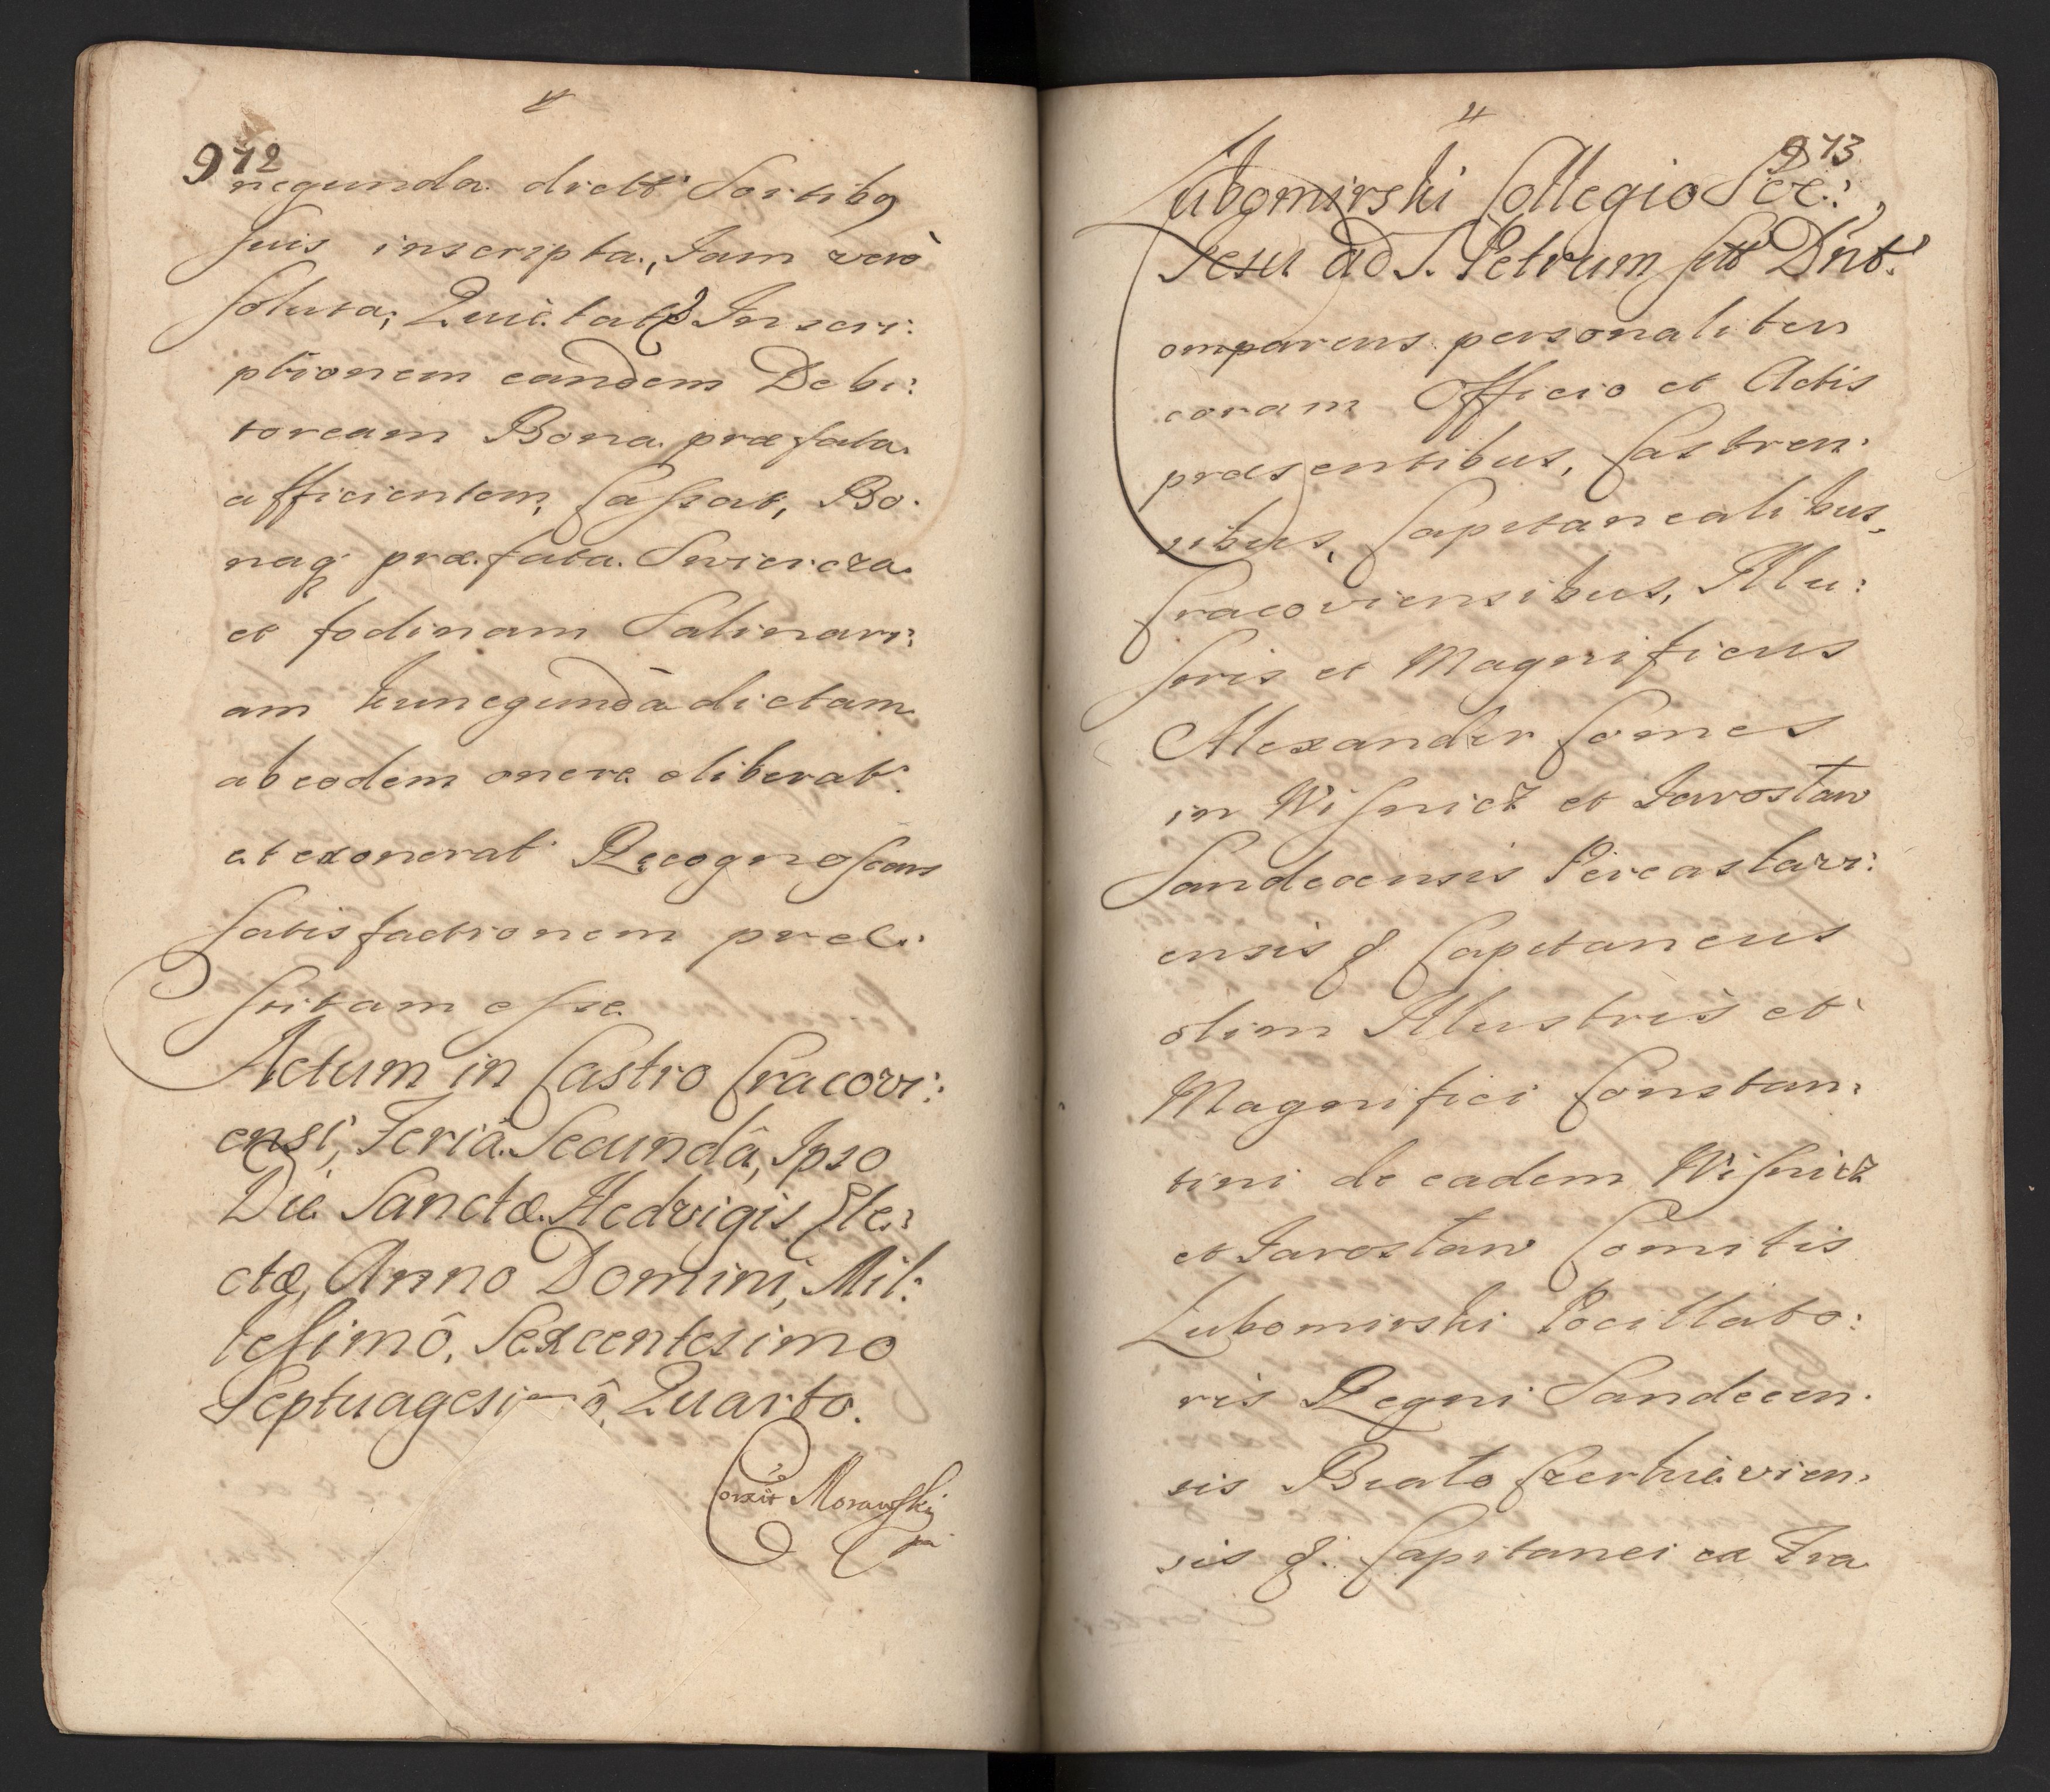 972
negunda dictt Sortibq
suis inscripta, Jam verò
soluta, Quietatq Inscri:
ptionem eandem Debi:
toream Bona præfata
afficientem, Cassat, Bo:
naq præfata Swiercza
et fodinam Salinari:
am Kunegunda dictam
ab eodem onere liberat
et exonerat Recognoscens
satisfactionem præ:
stitam esse
Actum in Castro Cracovi:
ensi, Feriâ Secundâ, Ipso
Die Sanctæ Hedvigis Ele:
ctæ, Anno Domini, Mil:
lesimô, Sexcentesimo
Septuagesimô, Quarto.
Corxit Morawski
mp
973
Lubomirski Collegio Soc:
Jesu ad S. Petrum Dnt.
Comparens personaliter
coram Officio et Actis
præsentibus, Castren:
sibus, Capitanealibus
Cracoviensibus, Illu:
stris et Magnificus
Alexander Comes
in Wisnicz et Jarosław
Sandecensis Pereaslavi:
ensis q Capitaneus
olim Illustris et
Magnifici Constan:
tini de eadem Wisnicz
et Jarosław Comitis
Lubomirski Pocillato:
ris Regni Sandecen:
sis Biało Czerkievien:
sis q: Capitanei ex Fra